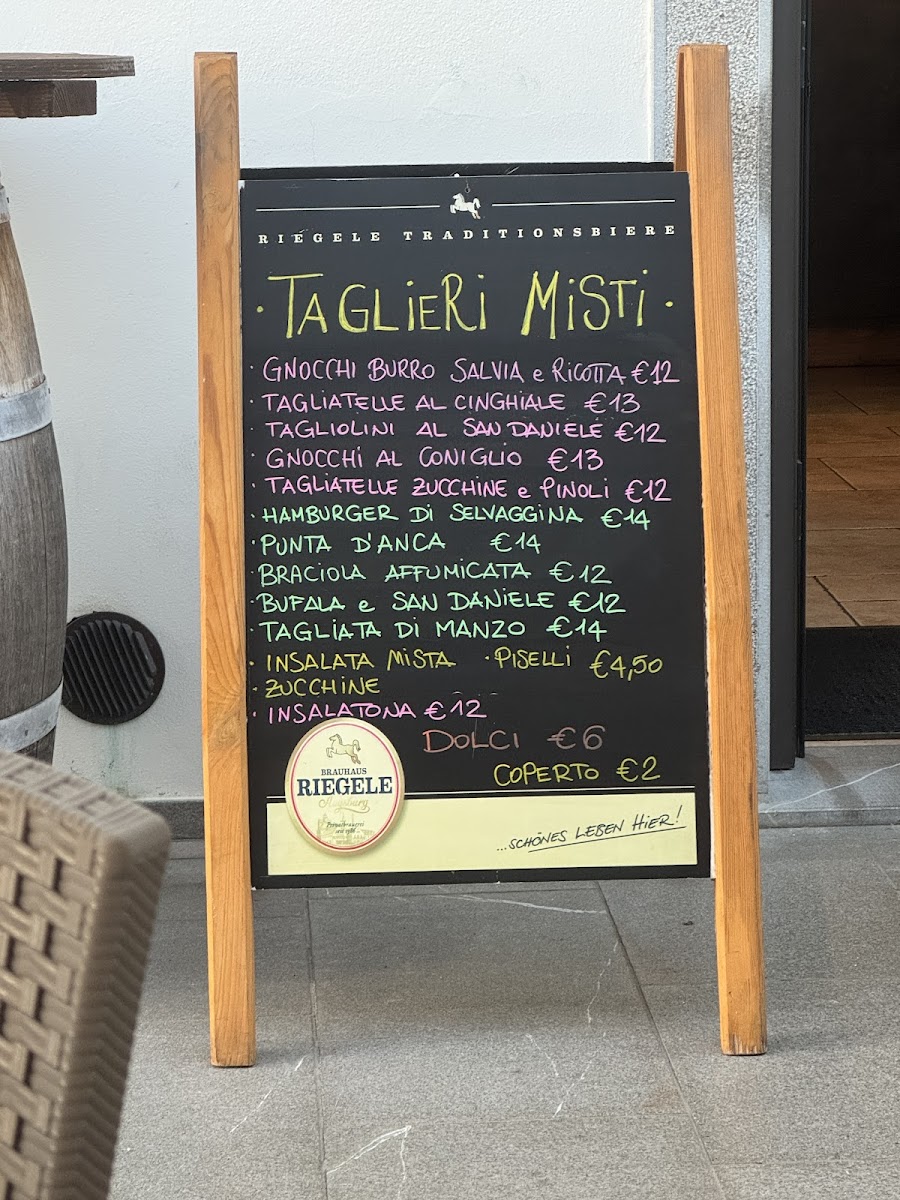 RIEGELE TRADITIONSBIERE
· TAGLIERI MISTI ·
· GNOCCHI BURRO SALVIA e RICOTTA €12
· TAGLIATELLE AL CINGHIALE €13
· TAGLIOLINI AL SAN DANIELE €12
· GNOCCHI AL CONIGLIO €13
· TAGLIATELLE ZUCCHINE e PINOLI €12
· HAMBURGER DI SELVAGGINA €14
· PUNTA D'ANCA €14
· BRACIOLA AFFUMICATA €12
· BUFALA e SAN DANIELE €12
· TAGLIATA DI MANZO €14
· INSALATA MISTA · PISELLI €4,50
· ZUCCHINE
· INSALATONA €12
DOLCI €6
COPERTO €2
BRAUHAUS
RIEGELE
Augsburg
...SCHÖNES LEBEN HIER!